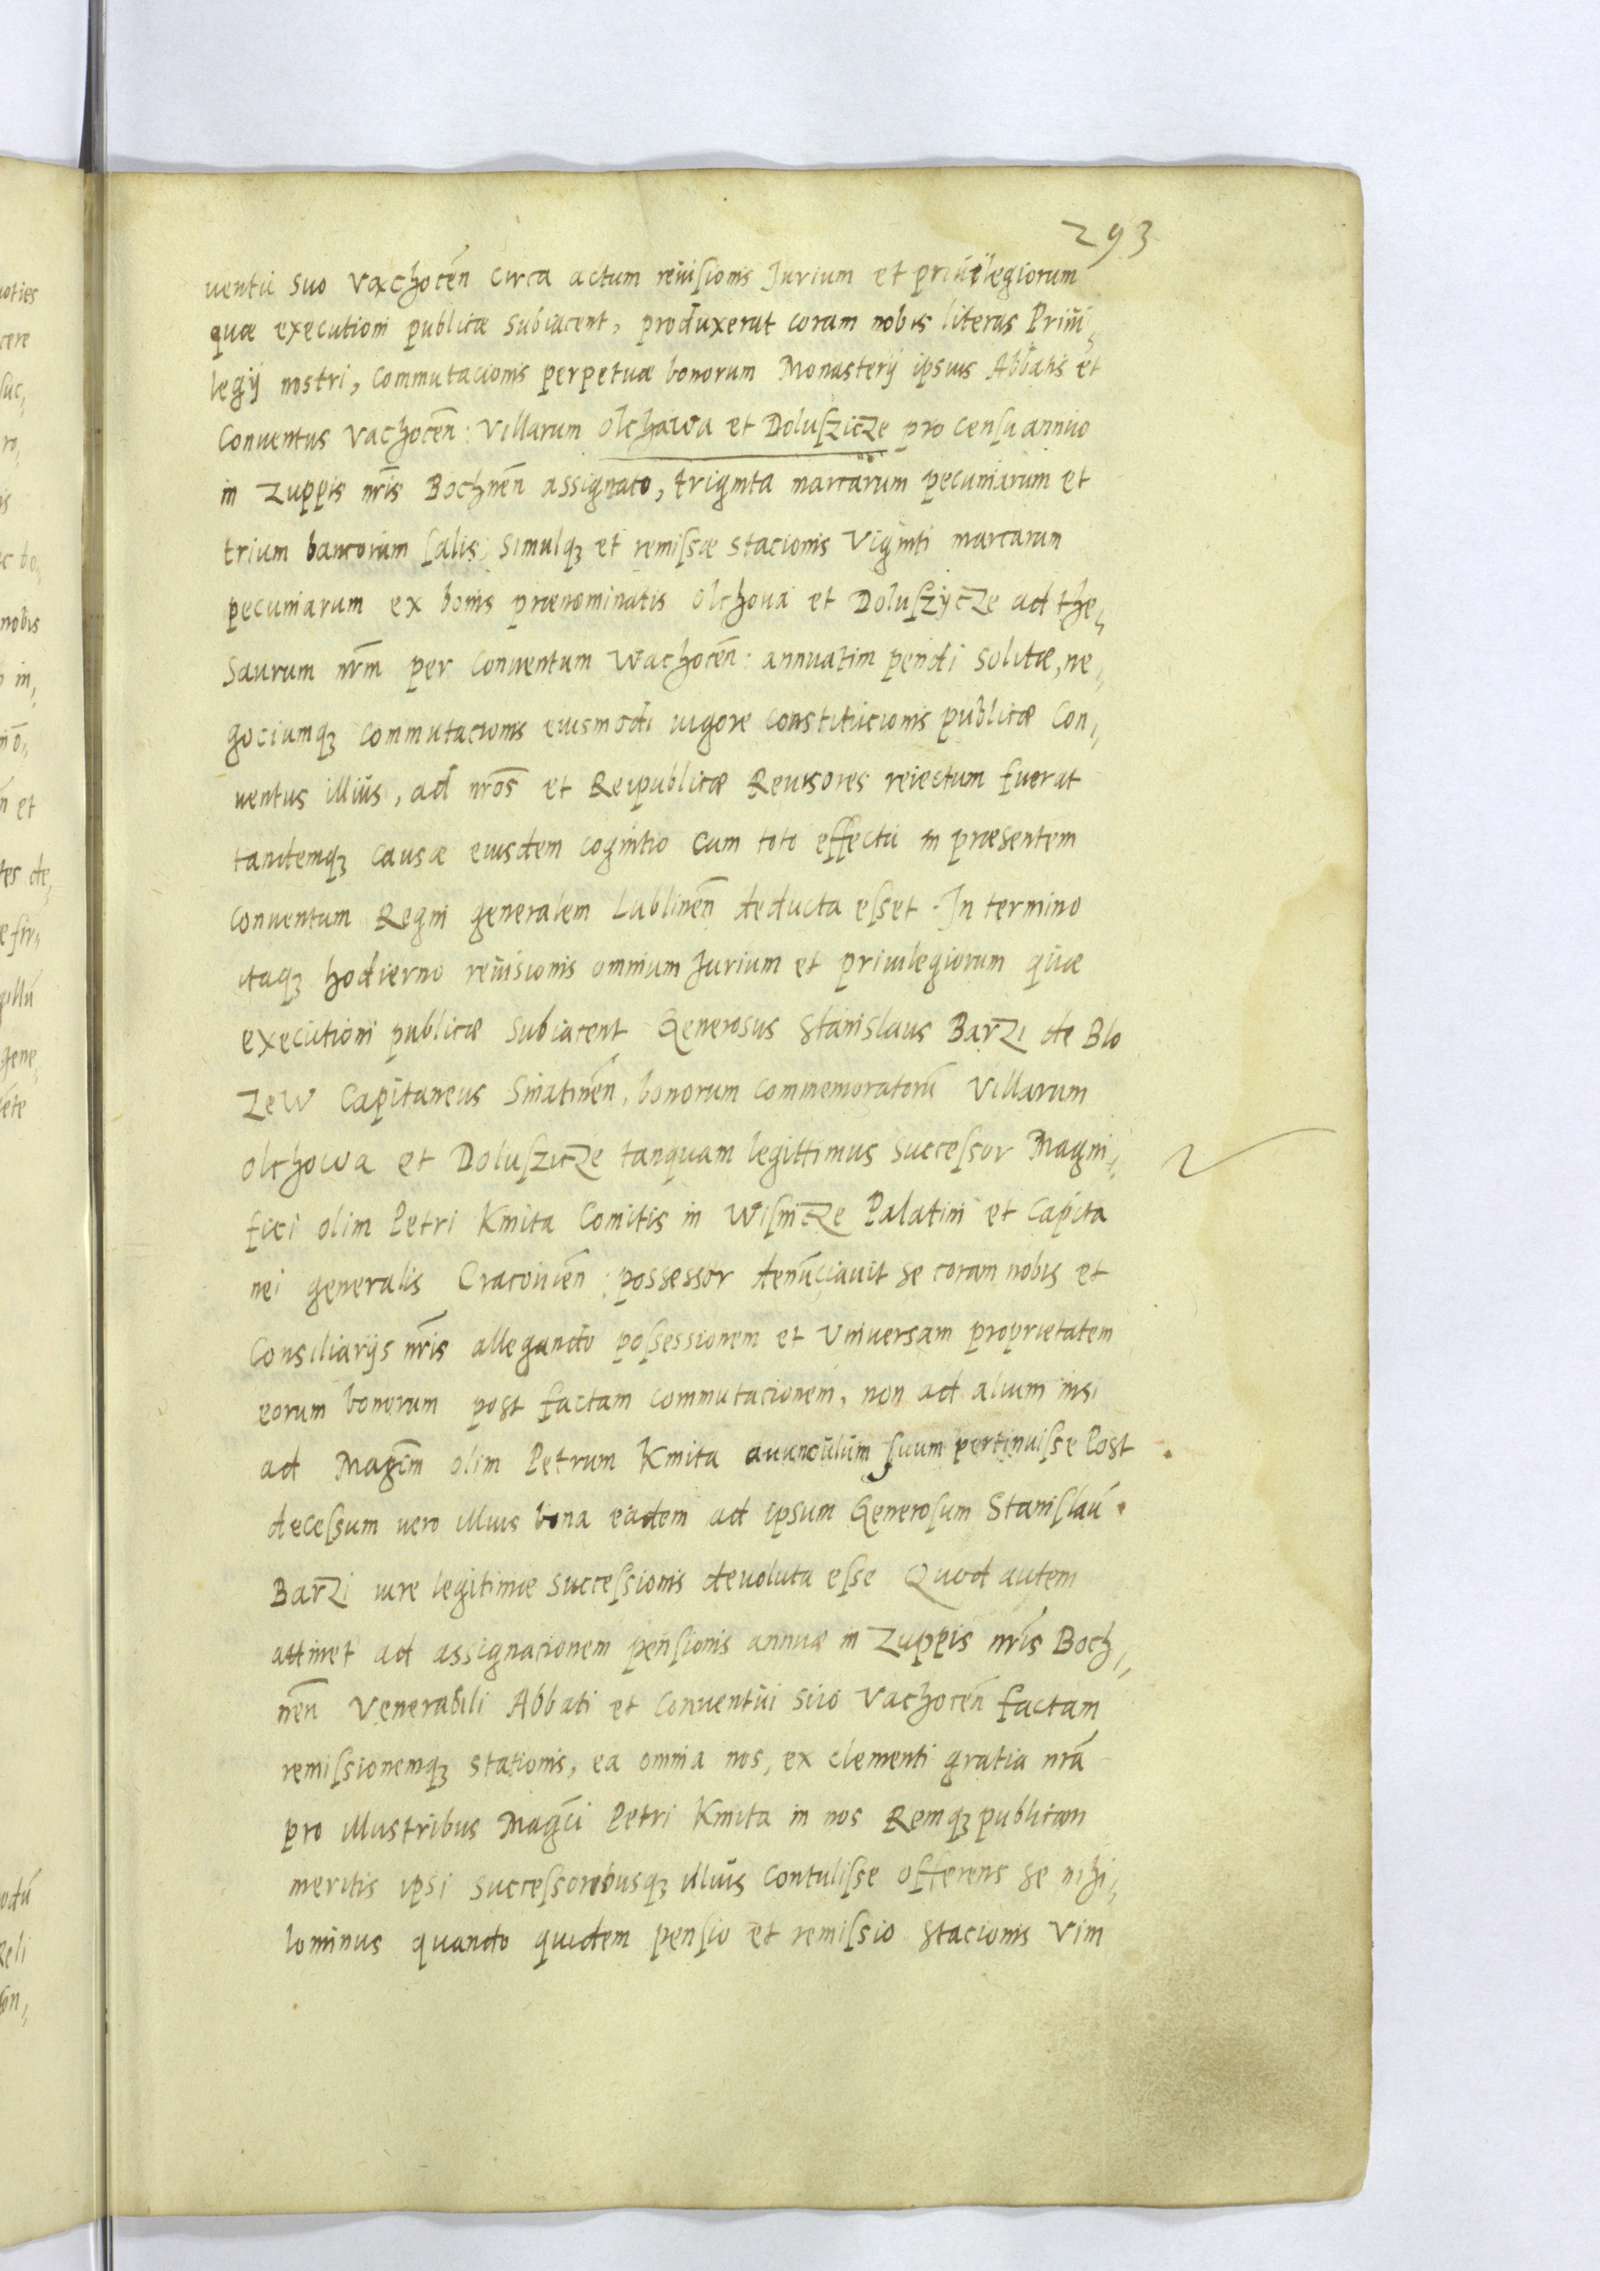 293
uentu suo Vachocēn circa actum reuisionis Jurium et priuilegiorum
quæ executioni publicæ subiacent, produxerat coram nobis literas Priui,
legij nostri, commutacionis perpetuæ bonorum Monasterij ipsius Abbatis et
Conuentus Vachocēn: Villarum Olchawa et Doluſzicze pro censu annuo
in Zuppis nr̄is Bochnēn assignato, triginta marcarum pecuniarum et
trium bancorum ſalis, simulqꝫ et remiſsæ stacionis Viginti marcarum
pecuniarum ex bonis prænominatis Olchoua et Doluſzÿcze ad the,
saurum nr̄m per Conuentum Wachocēn: annuatim pendi solitæ, ne,
gociumqꝫ commutacionis euismodi uigore constitucionis publicæ Con,
uentus illius, ad nr̄os et Reipublicæ Reuisores reiectum fuerat
tandemqꝫ causæ eiusdem cognitio cum toto effectu in præsentem
conuentum Regni generalem Lublinēn deducta eſset. In termino
itaqꝫ hodierno reuisionis omnium Jurium et priuilegiorum quæ
executioni publicæ subiacent Generosus Stanislaus Barzi de Blo
zew Capitaneus Sniatinēn, bonorum commemoratorū Villarum
Olchowa et Doluſzicze tanquam legittimus succeſsor Magni,
fici olim Petri Kmita Comitis in Wiſnicze Palatini et Capita
nei generalis Cracouiēn: possessor denūciauit se coram nobis et
Consiliarijs nr̄is allegando poſsessionem et Vniuersam proprietatem
eorum bonorum post factam commutacionem, non ad alium nisi
ad Magcm̄ olim Petrum Kmita auunculum ſuum pertinuiſse Post
deceſsum uero illius bona eadem ad ipsum Generoſum Staniſlaū
Barzi iure legitimæ succeſsionis deuoluta eſse Quod autem
attinet ad assignacionem penſionis annuæ in Zuppis nr̄is Boch,
nēn Venerabili Abbati et Conuentui suo Vachocēn factam
remiſsionemqꝫ stationis, ea omnia nos, ex clementi gratia nr̄a
pro illustribus Magc̄i Petri Kmita in nos Remqꝫ publicam
meritis ipsi succeſsoribusqꝫ illius contuliſse offerens se nihi,
lominus quando quidem penſio et remiſsio stacionis Vim